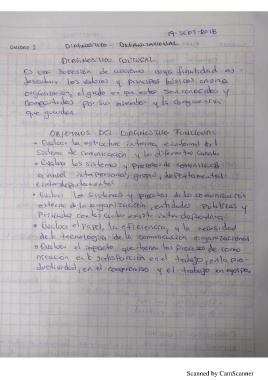 19-SEPT-2018
UNIDAD 2 DIAGNOSTICO ORGANIZACIONAL
DIAGNOSTICO CULTURAL
Es una sucesión de acciones cuya finalidad es
descubrir los valores y principios básicos de una
organización, el grado en que estos son conocidos y
compartidos por sus miembros y la congruencia
que guardan
OBJETIVOS DEL DIAGNOSTICO FUNCIONAL
• Evaluar la estructura interna formal del
sistema de comunicación y los diferentes canales
• Evaluar los sistemas y procesos de comunicación
a nivel interpersonal, grupal, departamental
e interdepartamental
• Evaluar los sistemas y procesos de la comunicación
externa de la organización, entidades públicas y
privadas con las cuales existe interdependencia
• Evaluar el papel, la eficiencia, y la necesidad
de la tecnologia de la comunicacion organizacional
• Evaluar el impacto que tienen los procesos de comu
nicacion en la satisfacción en el trabajo, en la pro-
ductividad, en el compromiso y el trabajo en equipo
Scanned by CamScanner